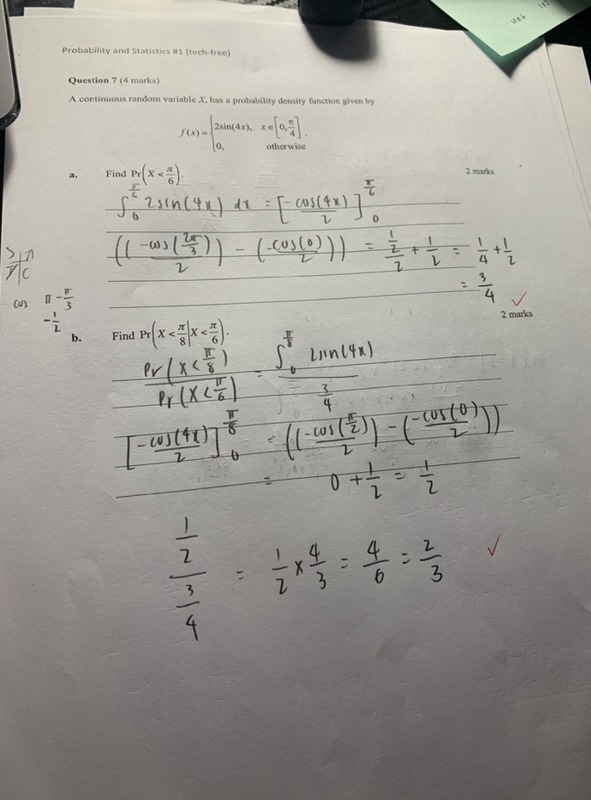 Probability and Statistics #1 (tech-free)
Question 7 (4 marks)
A continuous random variable X, has a probability density function given by
f(x) = {2sin(4x), x ∈ [0, π/4]
0, otherwise
a. Find Pr(X < π/6). 2 marks
∫₀^(π/6) 2sin(4x) dx = [-cos(4x)/2]₀^(π/6)
((-cos(2π/3)/2) - (-cos(0)/2)) = (1/2)/2 + 1/2 = 1/4 + 1/2
= 3/4 ✓
S π
T C
cos π - π/3
-1/2
2 marks
b. Find Pr(X < π/8 | X < π/6).
Pr(X < π/8) / Pr(X < π/6) = ∫₀^(π/8) 2sin(4x) / (3/4)
[-cos(4x)/2]₀^(π/8) = ((-cos(π/2)/2) - (-cos(0)/2))
= 0 + 1/2 = 1/2
(1/2)/(3/4) = 1/2 × 4/3 = 4/6 = 2/3 ✓